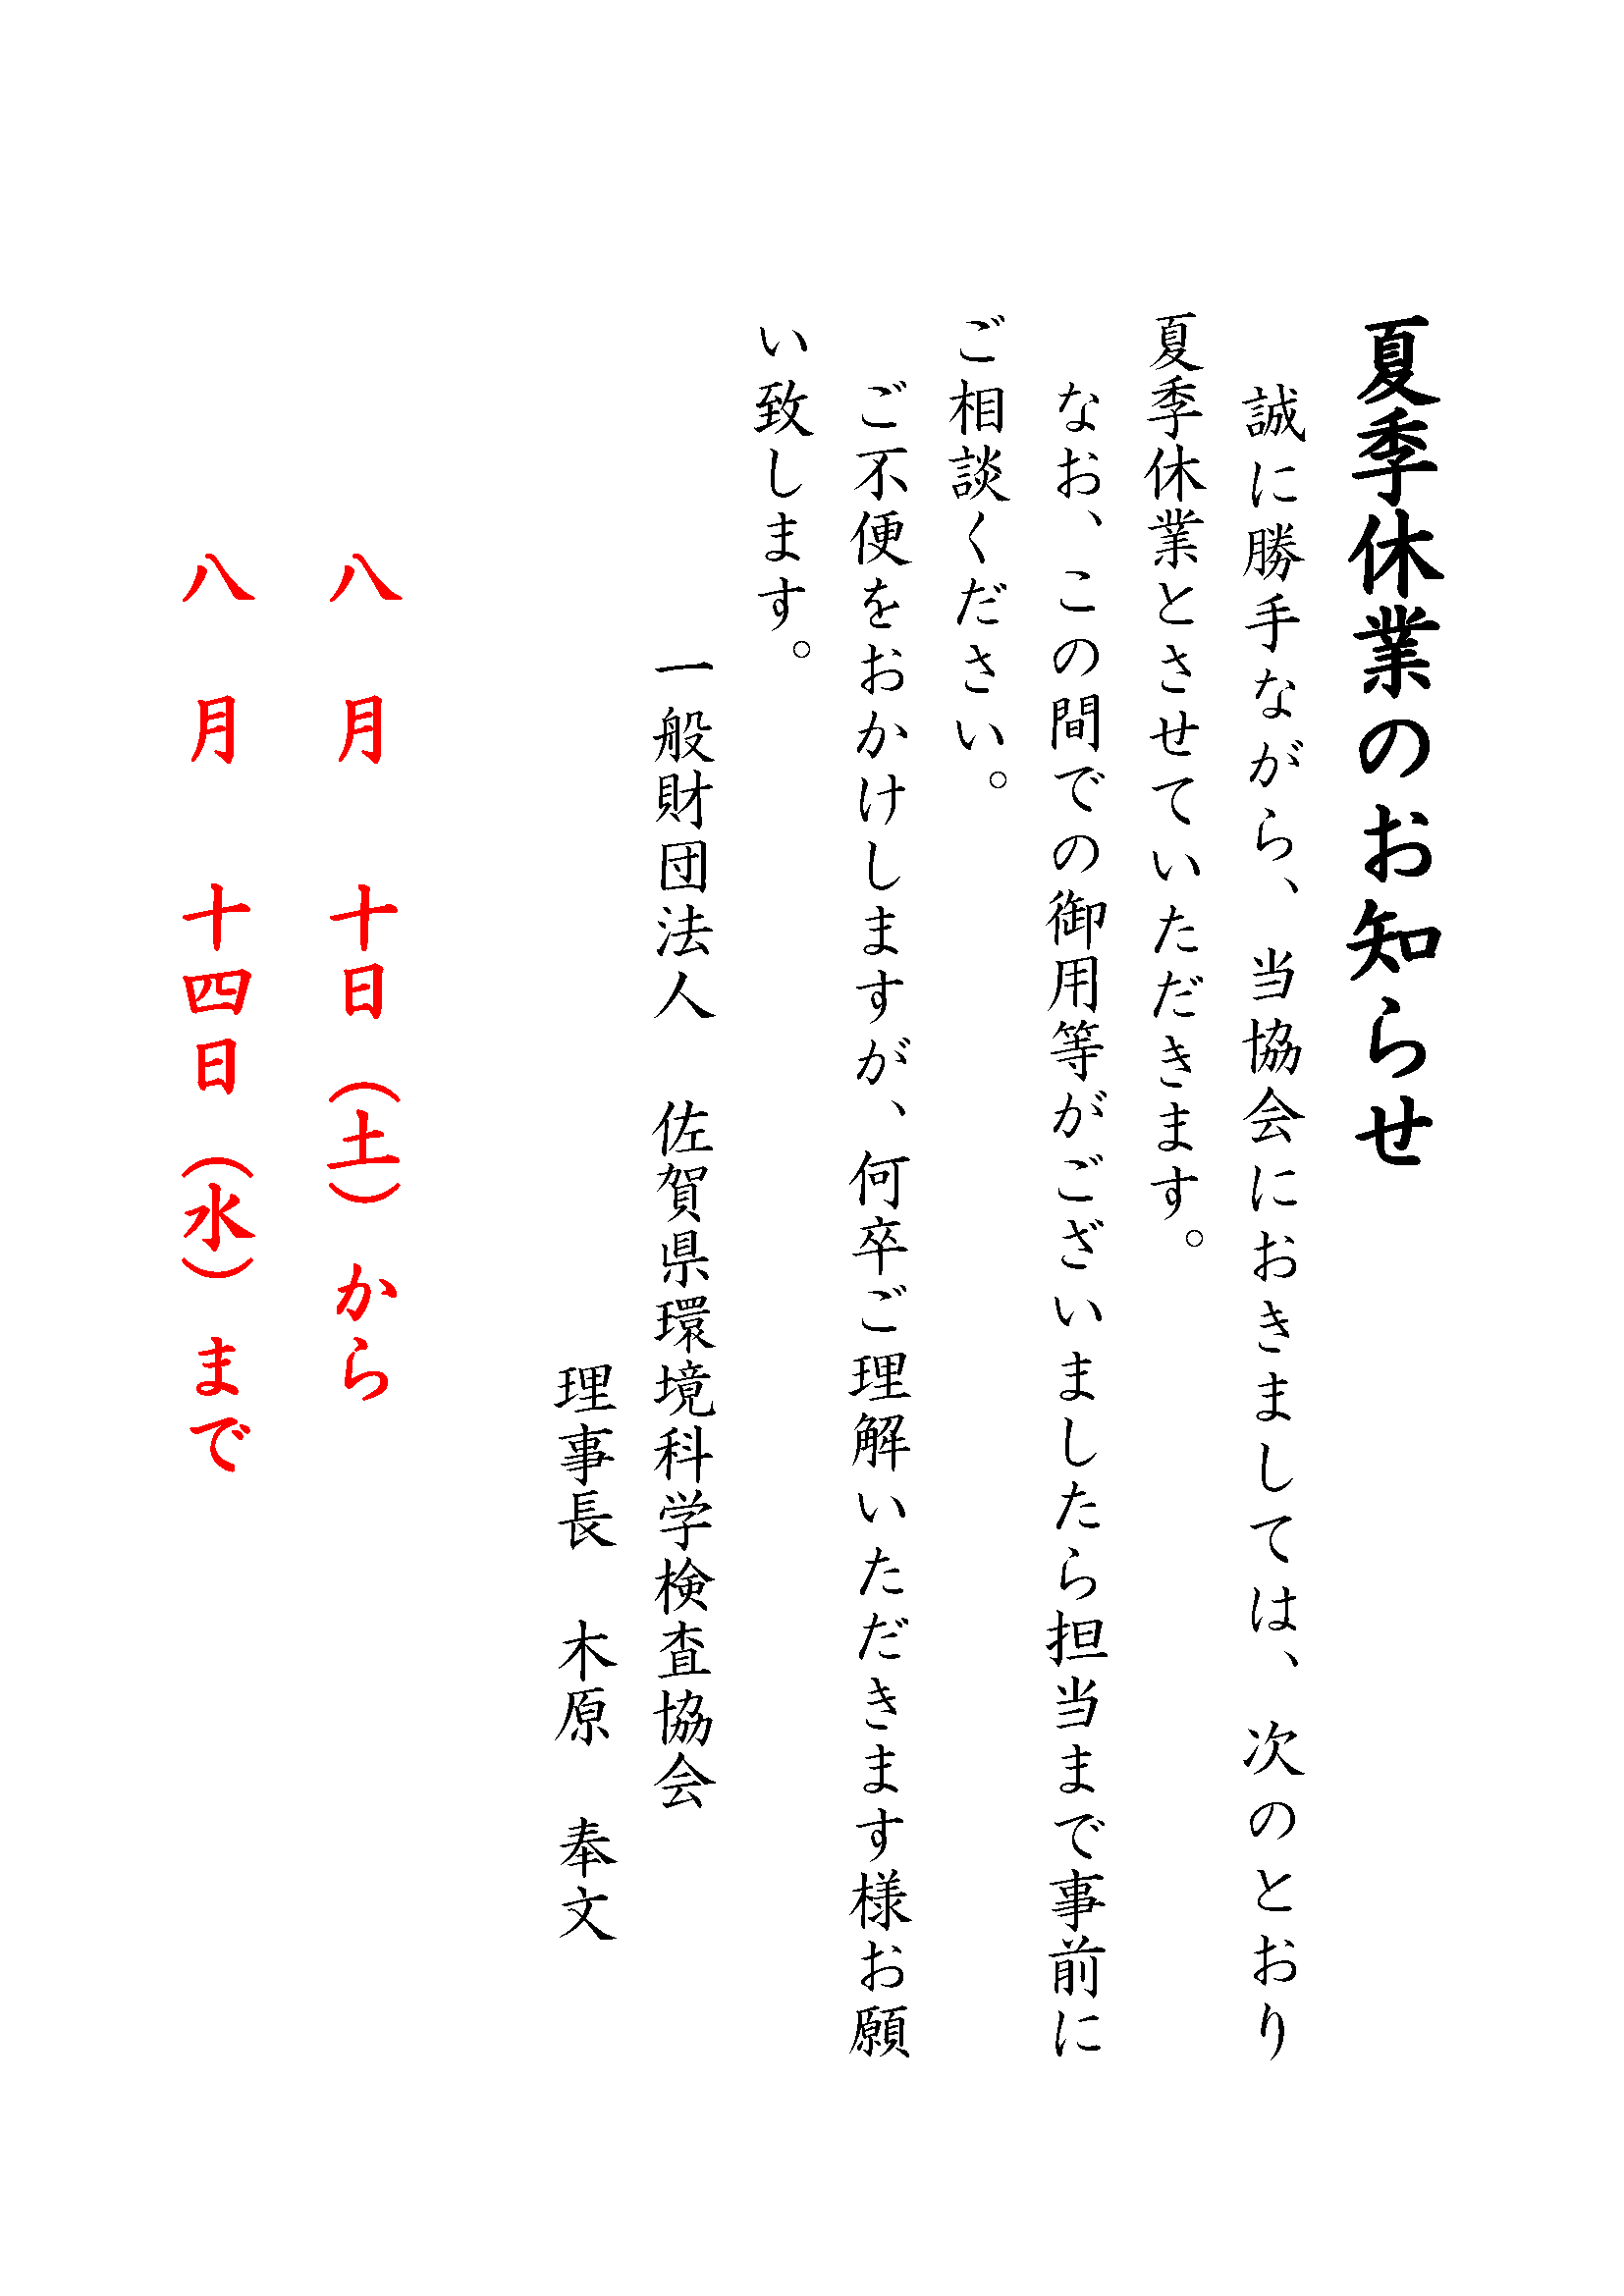 夏季休業のお知らせ
誠に勝手ながら、当協会におきましては、次のとおり
夏季休業とさせていただきます。
なお、この間での御用等がございましたら担当まで事前に
ご相談ください。
ご不便をおかけしますが、何卒ご理解いただきます様お願
い致します。
一般財団法人　佐賀県環境科学検査協会
理事長　木原　奉文
八　月　十日（土）から
八　月　十四日（水）まで